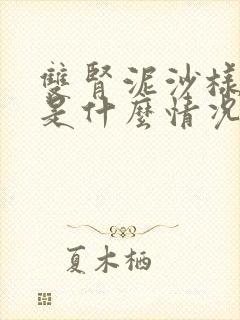 雙腎泥沙樣
是什麼情況
夏木栖